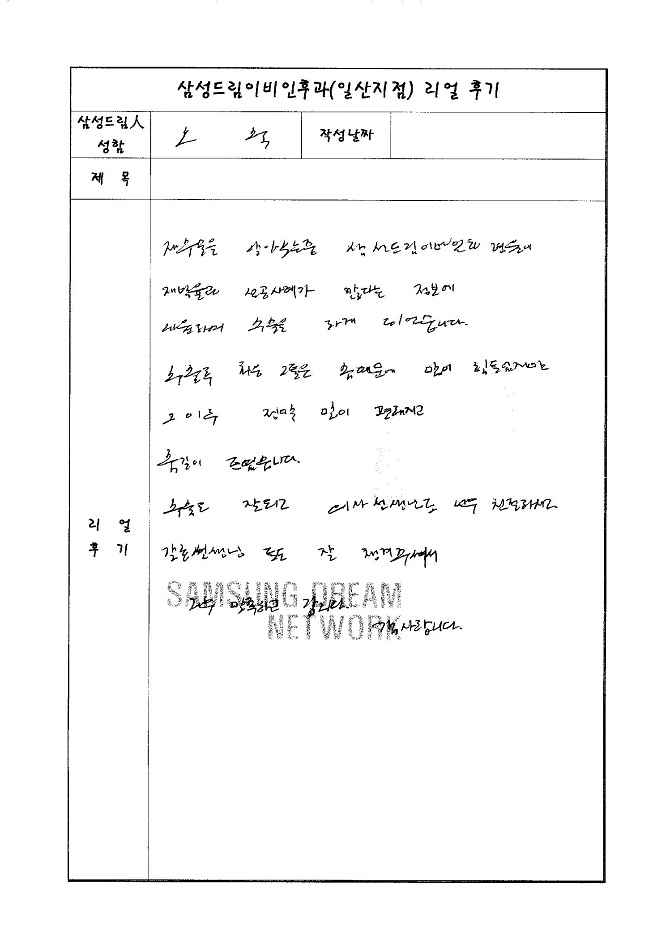 삼성드림이비인후과(일산지점) 리얼 후기
삼성드림人
성함
오 욱
작성날짜
제 목
재수술을 알아보는중 삼성드림이비인후과 편들이
재발율과 성공사례가 많다는 정보에
내원하여 수술을 하게 되었습니다.
수술후 하루 2틀은 솜때문에 많이 힘들었지만
그 이후 정말 많이 편해지고
숨길이 트였습니다.
수술도 잘되고 의사선생님도 너무 친절하시고
간호선생님 또도 잘 챙겨주셔서
너무 만족하고 갑니다.
감사합니다.
리 얼
후 기
SAMSUNG DREAM
NETWORK